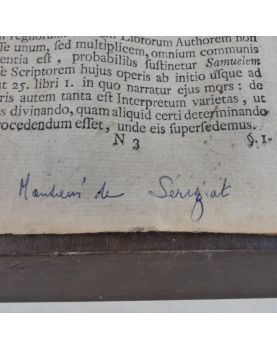 regnorum Librorum Authorem non
lle unum, sed multiplicem, omnium communis
entia est, probabilius sustinetur Samuelem
se Scriptorem hujus operis ab initio usque ad
ut 25. libri 1. in quo narratur ejus mors: de
ris autem tanta est Interpretum varietas, ut
us divinando, quam aliquid certi determinando
rocedendum esset, unde eis supersedemus.
N 3 §. 1-
de Sérizat